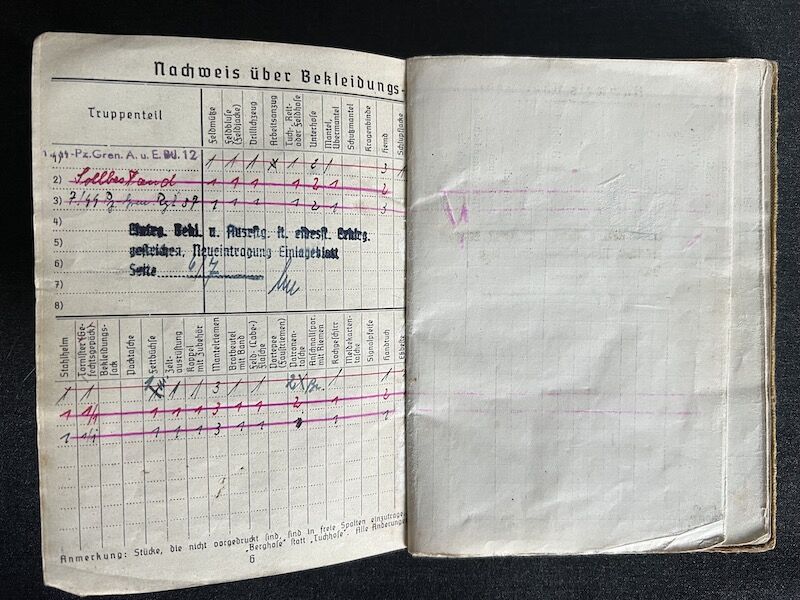 Nachweis über Bekleidungs-
Truppenteil
Feldmütze
Feldbluse (Feldjacke)
Drillichzeug
Arbeitsanzug
Tuch-, Reit- oder Feldhose
Unterhose
Mantel, Übermantel
Schutzmantel
Kragenbinde
Hemd
-Pz.Gren. A. u. E. Btl. 12 1 1 1 x 1 2 1 3
2) Sollbestand 1 1 1 1 2 1 2
3) 1 1 1 1 2 1 3
4)
5)
6)
7)
8)
Eintrg. Bekl. u. Ausrstg. lt.
gestrichen, Neueintragung Einlageblatt
Seite 6/7
Stahlhelm
Tornister (Gefechtsgepäck)
Bekleidungssack
Packtasche
Fettbüchse
Zeltausrüstung
Koppel mit Zubehör
Mantelriemen
Brotbeutel mit Band
Feld-(Labe-) flasche
Portepee (Faustriemen)
Patronentasche
Anschnallspor. mit Riemen
Kochgeschirr
Meldekartentasche
Signalpfeife
Handtuch
1 1 1 1 3 1 1 2 1 1
1 1/1 1 1 1 3 1 1 2 1 2
1 1/1 1 1 1 3 1 1 1 1
Anmerkung: Stücke, die nicht vorgedruckt sind, sind in freie Spalten einzutrage
„Berghose" statt „Tuchhose". Alle Änderungen
6